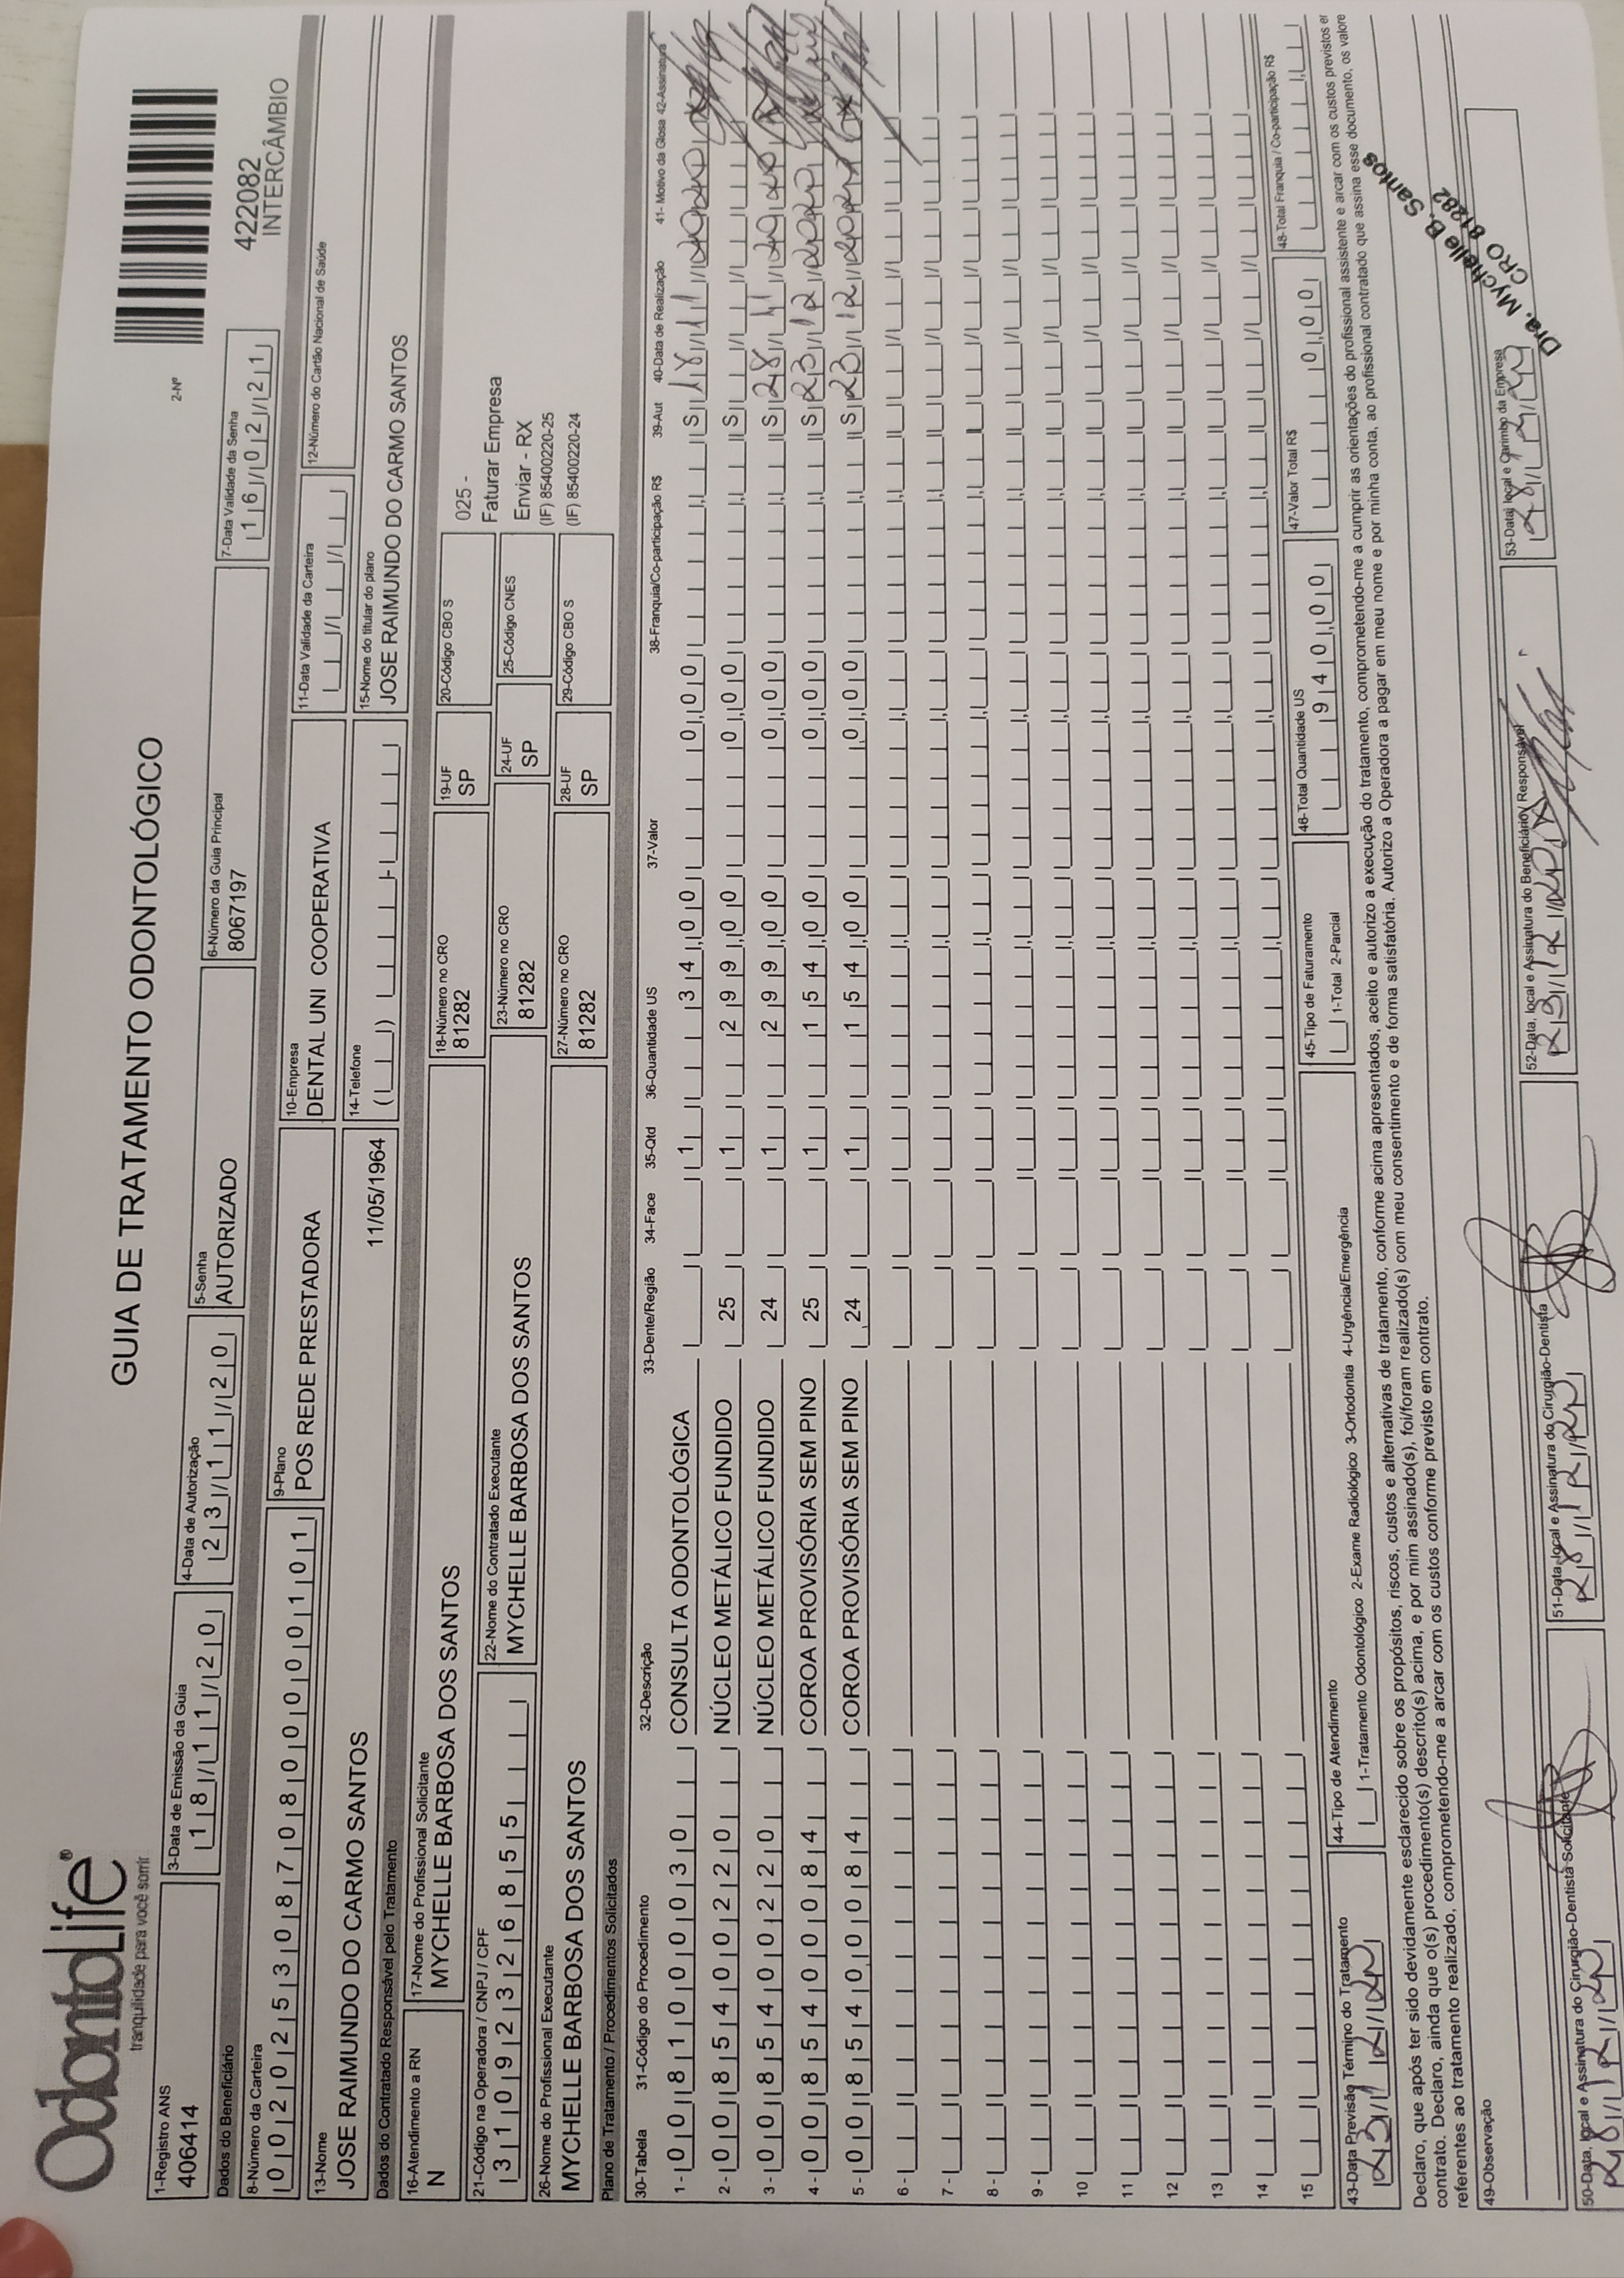 OdontoLife®
tranquilidade para você sorrir
GUIA DE TRATAMENTO ODONTOLÓGICO
2-Nº
422082
INTERCÂMBIO
1-Registro ANS
406414
3-Data de Emissão da Guia
18/11/20
4-Data de Autorização
23/11/20
5-Senha
AUTORIZADO
6-Número da Guia Principal
8067197
7-Data Validade da Senha
16/02/21
Dados do Beneficiário
8-Número da Carteira
00202530870800000101
9-Plano
POS REDE PRESTADORA
10-Empresa
DENTAL UNI COOPERATIVA
11-Data Validade da Carteira
12-Número do Cartão Nacional de Saúde
13-Nome
JOSE RAIMUNDO DO CARMO SANTOS
11/05/1964
14-Telefone
15-Nome do titular do plano
JOSE RAIMUNDO DO CARMO SANTOS
Dados do Contratado Responsável pelo Tratamento
16-Atendimento a RN
N
17-Nome do Profissional Solicitante
MYCHELLE BARBOSA DOS SANTOS
18-Número no CRO
81282
19-UF
SP
20-Código CBO S
025 -
Faturar Empresa
Enviar - RX
(IF) 85400220-25
(IF) 85400220-24
21-Código na Operadora / CNPJ / CPF
31092326855
22-Nome do Contratado Executante
MYCHELLE BARBOSA DOS SANTOS
23-Número no CRO
81282
24-UF
SP
25-Código CNES
26-Nome do Profissional Executante
MYCHELLE BARBOSA DOS SANTOS
27-Número no CRO
81282
28-UF
SP
29-Código CBO S
Plano de Tratamento / Procedimentos Solicitados
30-Tabela 31-Código do Procedimento 32-Descrição 33-Dente/Região 34-Face 35-Qtd 36-Quantidade US 37-Valor 38-Franquia/Co-participação R$ 39-Aut 40-Data de Realização 41- Motivo da Glosa 42-Assinatura
1 - 00 81000030 CONSULTA ODONTOLÓGICA 1 34,00 0,00 S 18/11/2020
2 - 00 85400220 NÚCLEO METÁLICO FUNDIDO 25 1 299,00 0,00 S
3 - 00 85400220 NÚCLEO METÁLICO FUNDIDO 24 1 299,00 0,00 S 28/11/2020
4 - 00 85400084 COROA PROVISÓRIA SEM PINO 25 1 154,00 0,00 S 23/12/2020
5 - 00 85400084 COROA PROVISÓRIA SEM PINO 24 1 154,00 0,00 S 23/12/202
6 -
7 -
8 -
9 -
10
11
12
13
14
15
43-Data Previsão Término do Tratamento
23/12/20
44-Tipo de Atendimento
1-Tratamento Odontológico 2-Exame Radiológico 3-Ortodontia 4-Urgência/Emergência
45-Tipo de Faturamento
1-Total 2-Parcial
46-Total Quantidade US
940,00
47-Valor Total R$
0,00
48-Total Franquia / Co-participação R$
Declaro, que após ter sido devidamente esclarecido sobre os propósitos, riscos, custos e alternativas de tratamento, conforme acima apresentados, aceito e autorizo a execução do tratamento, comprometendo-me a cumprir as orientações do profissional assistente e arcar com os custos previstos
contrato. Declaro, ainda que o(s) procedimento(s) descrito(s) acima, e por mim assinado(s), foi/foram realizado(s) com meu consentimento e de forma satisfatória. Autorizo a Operadora a pagar em meu nome e por minha conta, ao profissional contratado que assina esse documento, os valore
referentes ao tratamento realizado, comprometendo-me a arcar com os custos conforme previsto em contrato.
49-Observação
50-Data, local e Assinatura do Cirurgião-Dentista Solicitante
51-Data, local e Assinatura do Cirurgião-Dentista
52-Data, local e Assinatura do Beneficiário/ Responsável
23/12/20
53-Data, local e Carimbo da Empresa
Dra. Mychelle B. Santos
CRO 81282